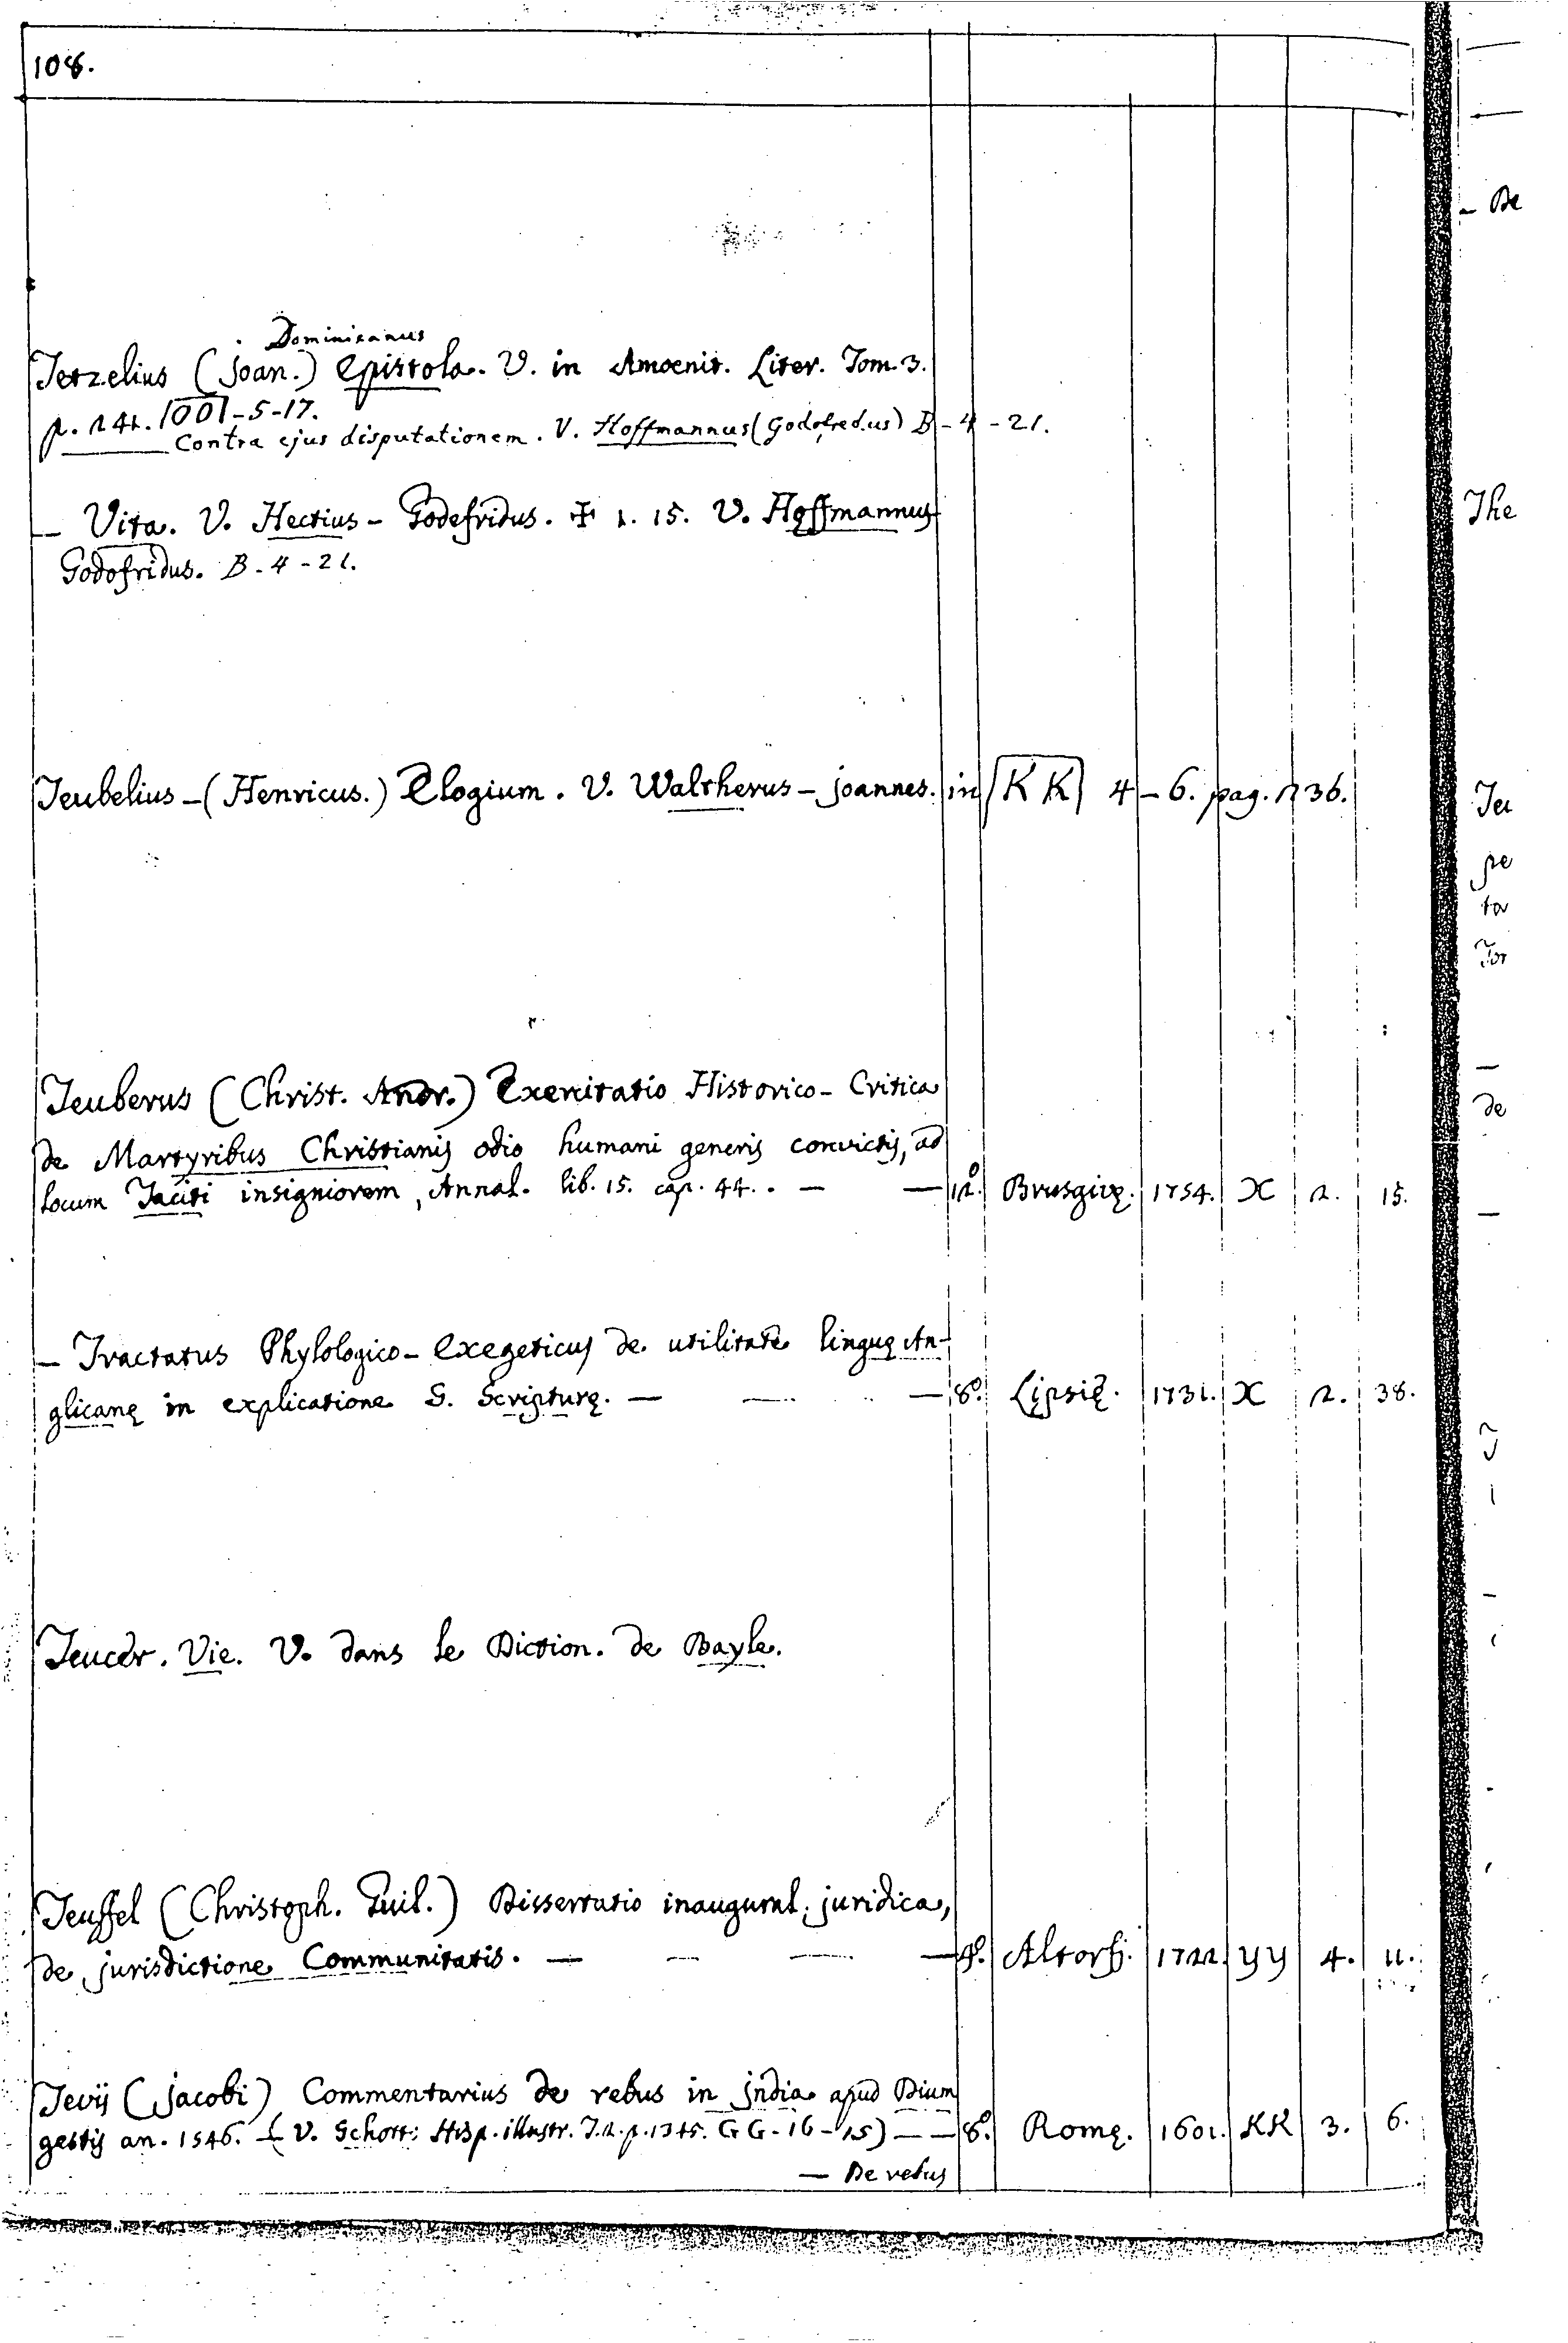 108.
Dominicanus
Tetzelius (Joan.) Epistola. V. in Amoenit. Liter. Tom. 3.
p. 241. |OO|-5-17.
Contra ejus disputationem. V. Hoffmannus (Godofredus) B-4-21.
— Vita. V. Hectius - Godefridus. ✠ 1. 15. V. Hoffmannus
Godofridus. B. 4-21.
Teubelius - (Henricus.) Elogium. V. Waltherus - Joannes. in |KK| 4-6. pag. 236.
Teuberus (Christ. Andr.) Exercitatio Historico-Critica
de Martyribus Christianis odio humani generis convictis, ad
locum Taciti insigniorem, Annal. lib. 15. cap. 44. — — 12.° 1754. X 2. 15.
— Tractatus Phylologico-Exegeticus de utilitate linguę An-
glicanę in explicatione S. Scripturę. — — — 8.° Lipsię. 1731. X 2. 38.
Teucer. Vie. V. dans le Diction. de Bayle.
Teuffel (Christoph. Guil.) Dissertatio inaugural. juridica,
de jurisdictione Communitatis. — — — — 4.° Altorfj. 1722. YY 4. 11.
Tevij (Jacobi) Commentarius de rebus in India apud Dium
gestis an. 1546. (V. Schott: Hisp. illustr. T. 2. p. 1345. GG-16-15) — — 8.° Romę. 1601. KK 3. 6.
— De rebus
— De
The
Teu
pe
ta
Tor
de